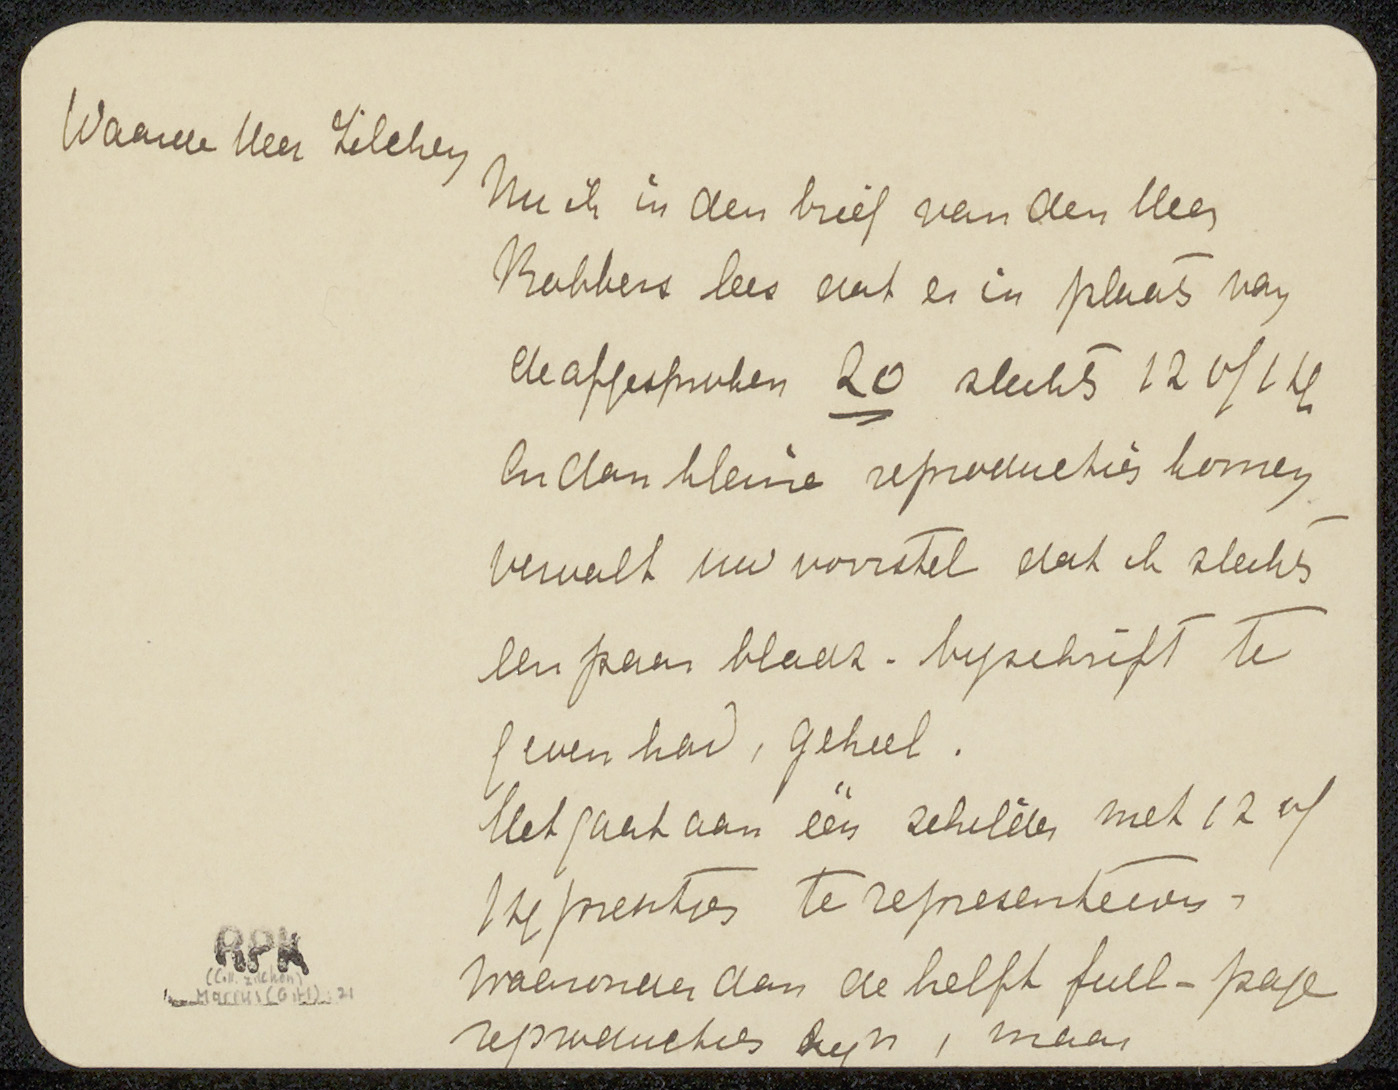 Waarde Heer Zilcken
Nu ik in den brief van den Heer
Robbers lees dat er in plaats van
de afgesproken 20 slechts 12 of 14
en dan kleine reproducties komen
vervalt uw voorstel dat ik slechts
een paar bladz. byschrift te
geven had, geheel.
Het gaat aan één schilder met 12 of
14 prentjes te representeeren,
waaronder dan de helft full-page
reproducties zyn, maar
RPK
(Coll. Zilcken)